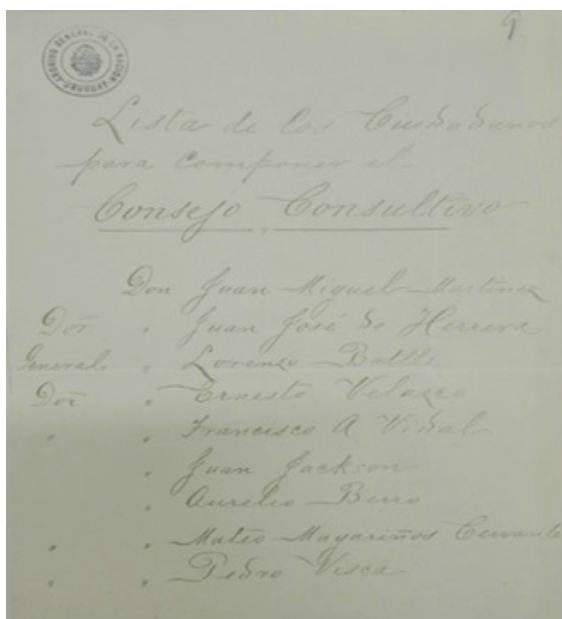 9
ARCHIVO GENERAL DE LA NACION
URUGUAY
Lista de los Ciudadanos
para componer el
Consejo Consultivo
Don Juan Miguel Martinez
Dor̄ " Juan José de Herrera
General " Lorenzo Batlle
Dor̄ " Ernesto Velazco
" " Francisco A Vidal
" Juan Jackson
" Aurelio Berro
" " Mateo Magariños Cervante
" " Pedro Visca